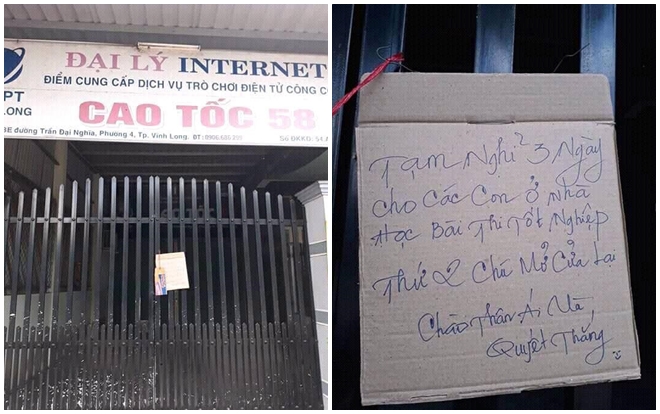 ĐẠI LÝ INTERNET
ĐIỂM CUNG CẤP DỊCH VỤ TRÒ CHƠI ĐIỆN TỬ CÔNG C
PT
LONG
CAO TỐC 58
E đường Trần Đại Nghĩa, Phường 4, Tp. Vĩnh Long. ĐT: Số ĐKKD: 54
Tạm Nghỉ 3 Ngày
cho các con ở nhà
Học Bài Thi Tốt Nghiệp
Thứ 2 chú Mở Cửa lại
Chào Thân Ái Và
Quyết Thắng